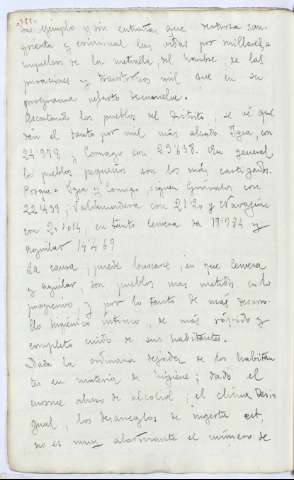 sin ejemplo y sin entrañas que destroza san-
grienta y criminal las vidas por millares, a
impulsos de la metralla, del hambre, de las
privaciones y desastres mil que en su
programa reparto desconsuelo.
Recortando los pueblos del Distrito, se vé que
dán el tanto por mil más alzado Igea, con
24'978 y Cornago con 23'638. En general
los pueblos pequeños son los más castigados.
Igea y Cornago siguen Grávalos con
22'499; Valdemadera con 21'20 y Navajún
con 20'104, en tanto Cervera da 17'984 y
Aguilar 14'469
La causa, puede buscarse, en que Cervera
y Aguilar son pueblos mas metidos en lo
progresivo y por lo tanto de más desarro-
llo higiénico intrínseco, de más rápido y
completo cuido de sus habitantes.
Dada la ordinaria dejadez de los habitan
tes en materia de higiene; dado el
enorme abuso de alcohol, el clima desi
gual, los desarreglos de ingesta ect,
no es muy alarmante el número de